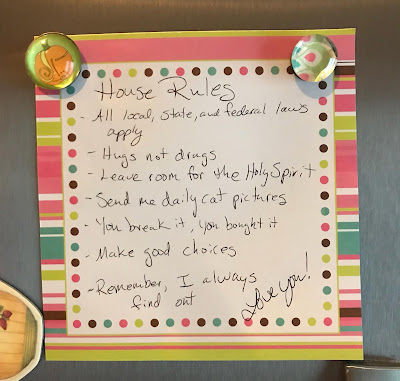 House Rules
- All local, state, and federal laws
apply
- Hugs not drugs
- Leave room for the Holy Spirit
- Send me daily cat pictures
- You break it, you bought it
- Make good choices
- Remember, I always
find out
Love you!